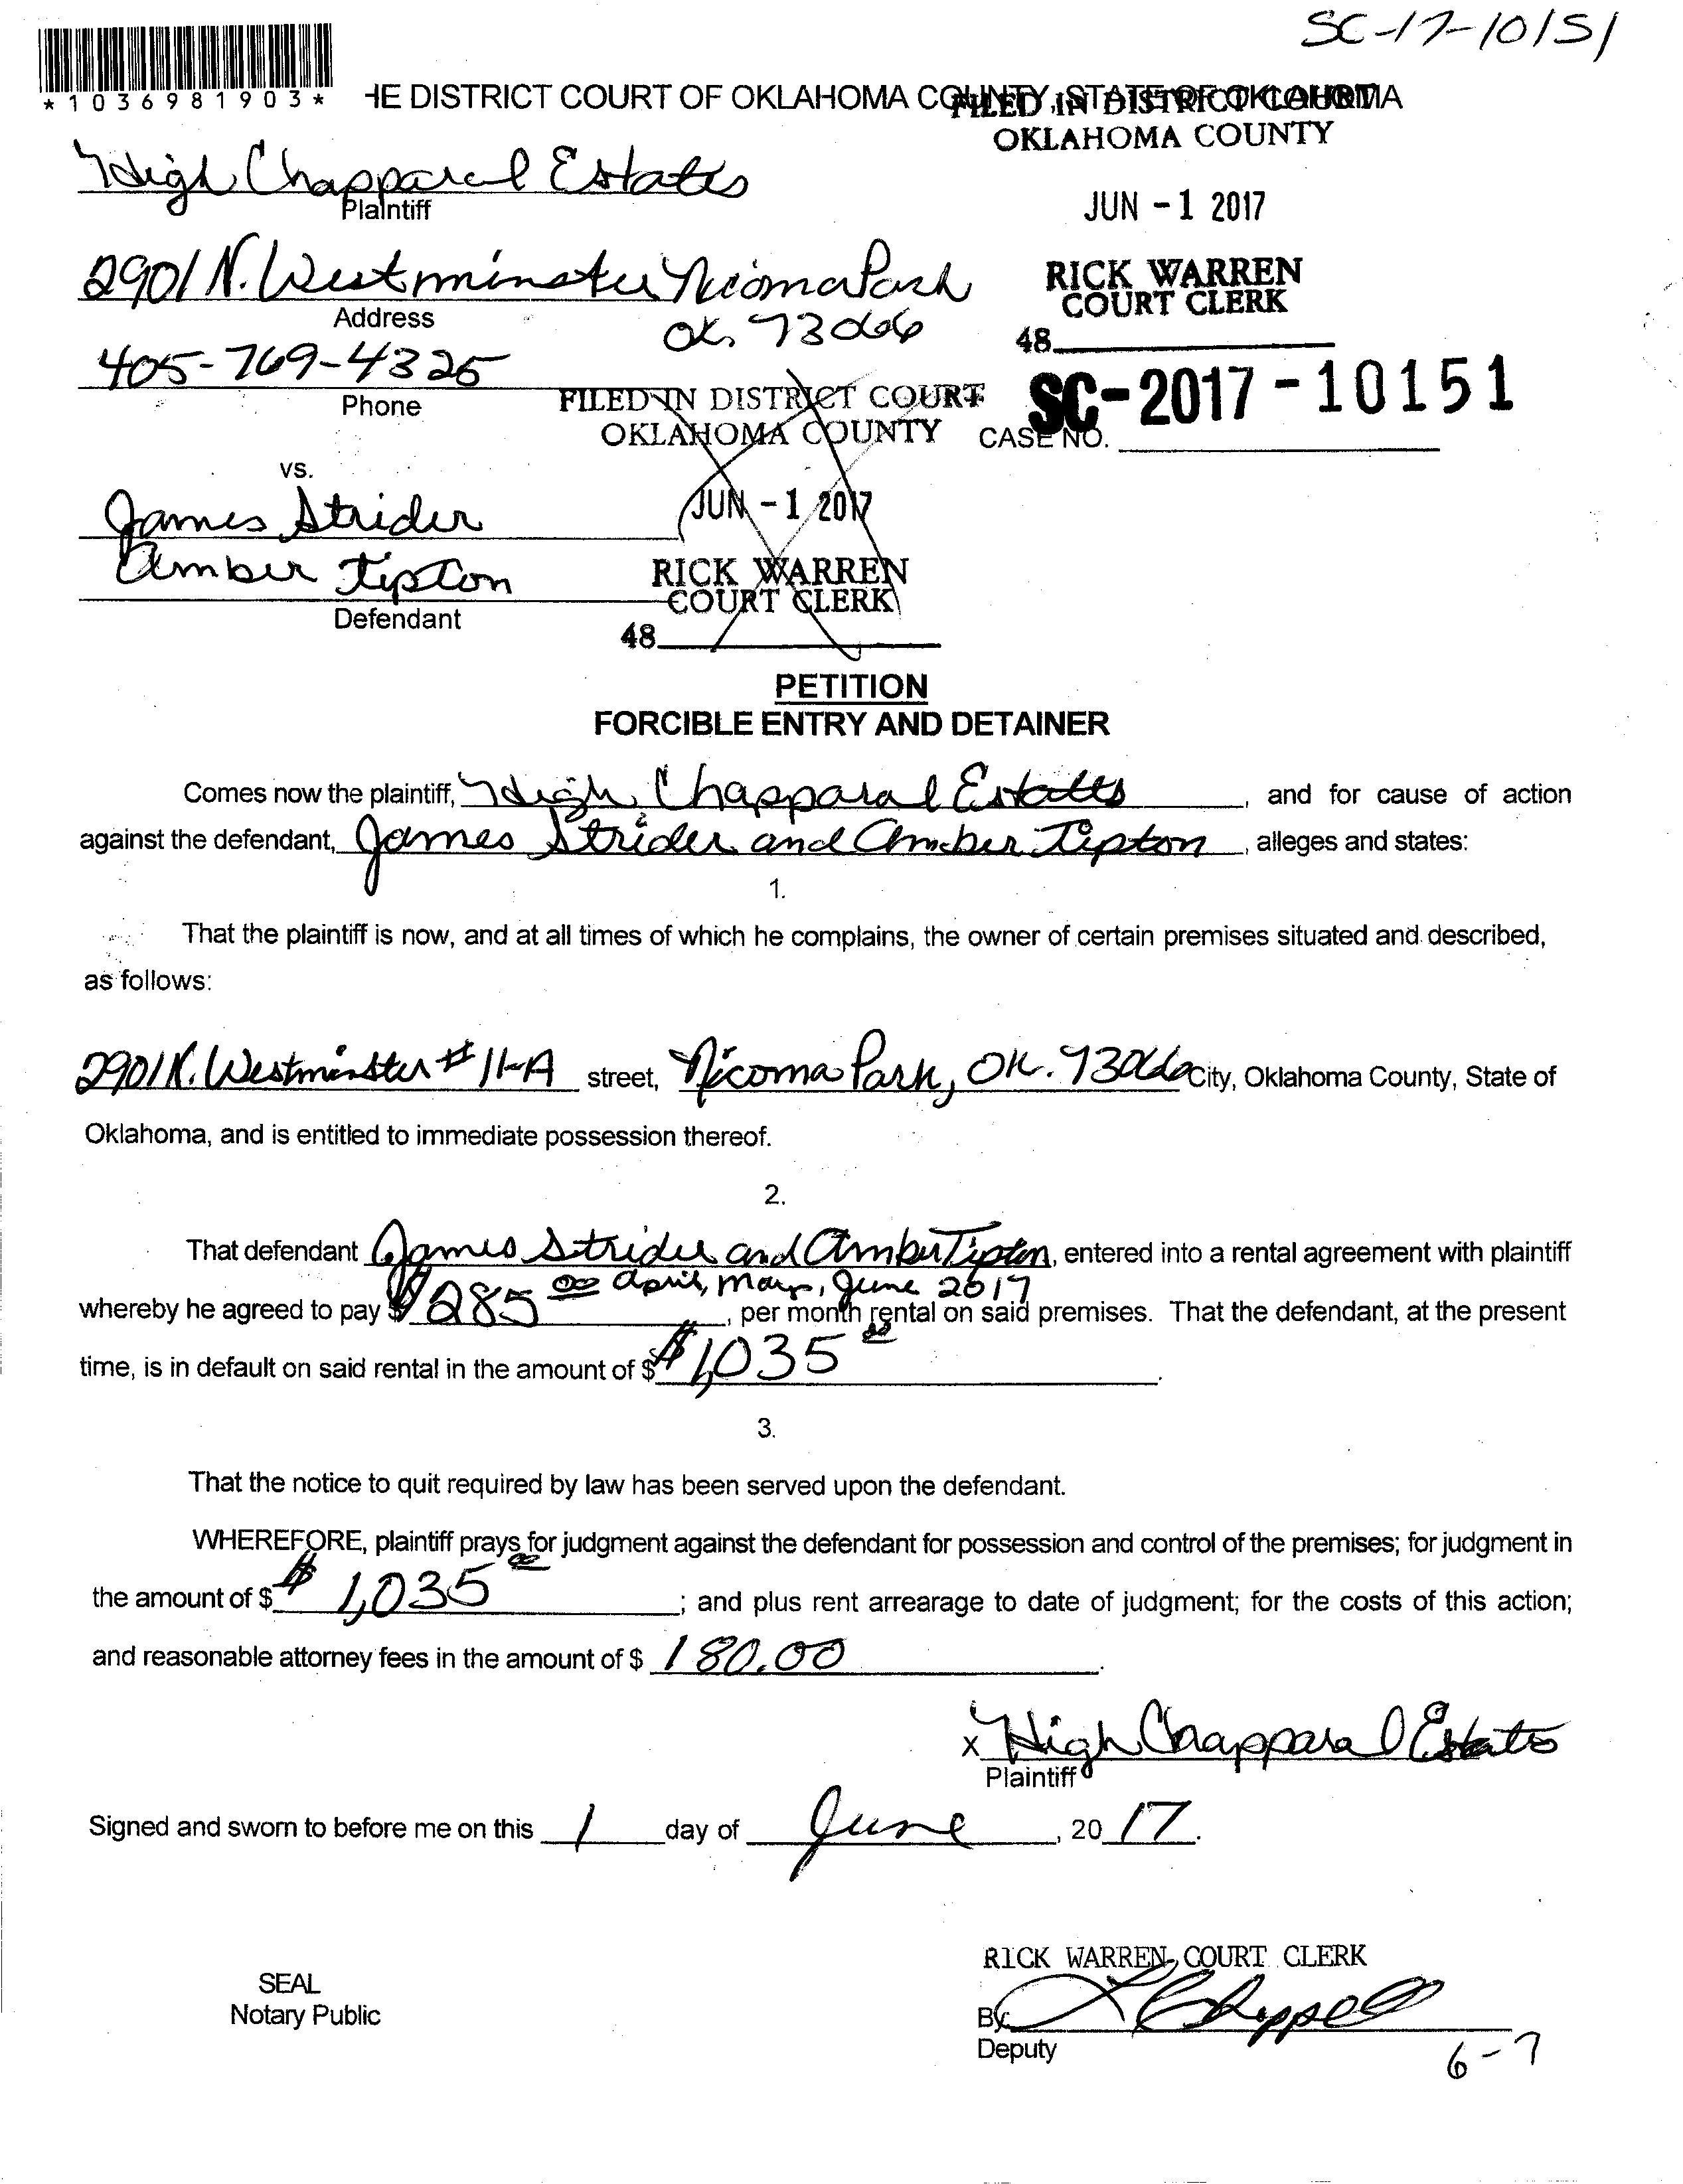 SC-17-10151
*1036981903*
HE DISTRICT COURT OF OKLAHOMA COUNTY, STATE OF OKLAHOMA
FILED IN DISTRICT COURT
OKLAHOMA COUNTY
High Chapparel Estates
Plaintiff
JUN -1 2017
2901 N. Westminster Nicoma Park
RICK WARREN
COURT CLERK
Address
OK. 73066
48
405-769-4325
Phone
FILED IN DISTRICT COURT
OKLAHOMA COUNTY
SC-2017-10151
CASE NO.
vs.
JUN -1 2017
James Strider
Amber Tipton
RICK WARREN
COURT CLERK
Defendant
48
PETITION
FORCIBLE ENTRY AND DETAINER
Comes now the plaintiff, High Chapparal Estates, and for cause of action
against the defendant, James Strider and Amber Tipton, alleges and states:
1.
That the plaintiff is now, and at all times of which he complains, the owner of certain premises situated and described,
as follows:
2901 N. Westminster # 11-A street, Nicoma Park, OK. 73066 City, Oklahoma County, State of
Oklahoma, and is entitled to immediate possession thereof.
2.
That defendant James Strider and Amber Tipton, entered into a rental agreement with plaintiff
April, May, June 2017
whereby he agreed to pay $ $285 00, per month rental on said premises. That the defendant, at the present
time, is in default on said rental in the amount of $ $1,035 00.
3.
That the notice to quit required by law has been served upon the defendant.
WHEREFORE, plaintiff prays for judgment against the defendant for possession and control of the premises; for judgment in
the amount of $ $1,035 00; and plus rent arrearage to date of judgment; for the costs of this action;
and reasonable attorney fees in the amount of $ 180.00.
x High Chapparal Estates
Plaintiff
Signed and sworn to before me on this 1 day of June, 20 17.
RICK WARREN, COURT CLERK
SEAL
Notary Public
By
Deputy
6-7